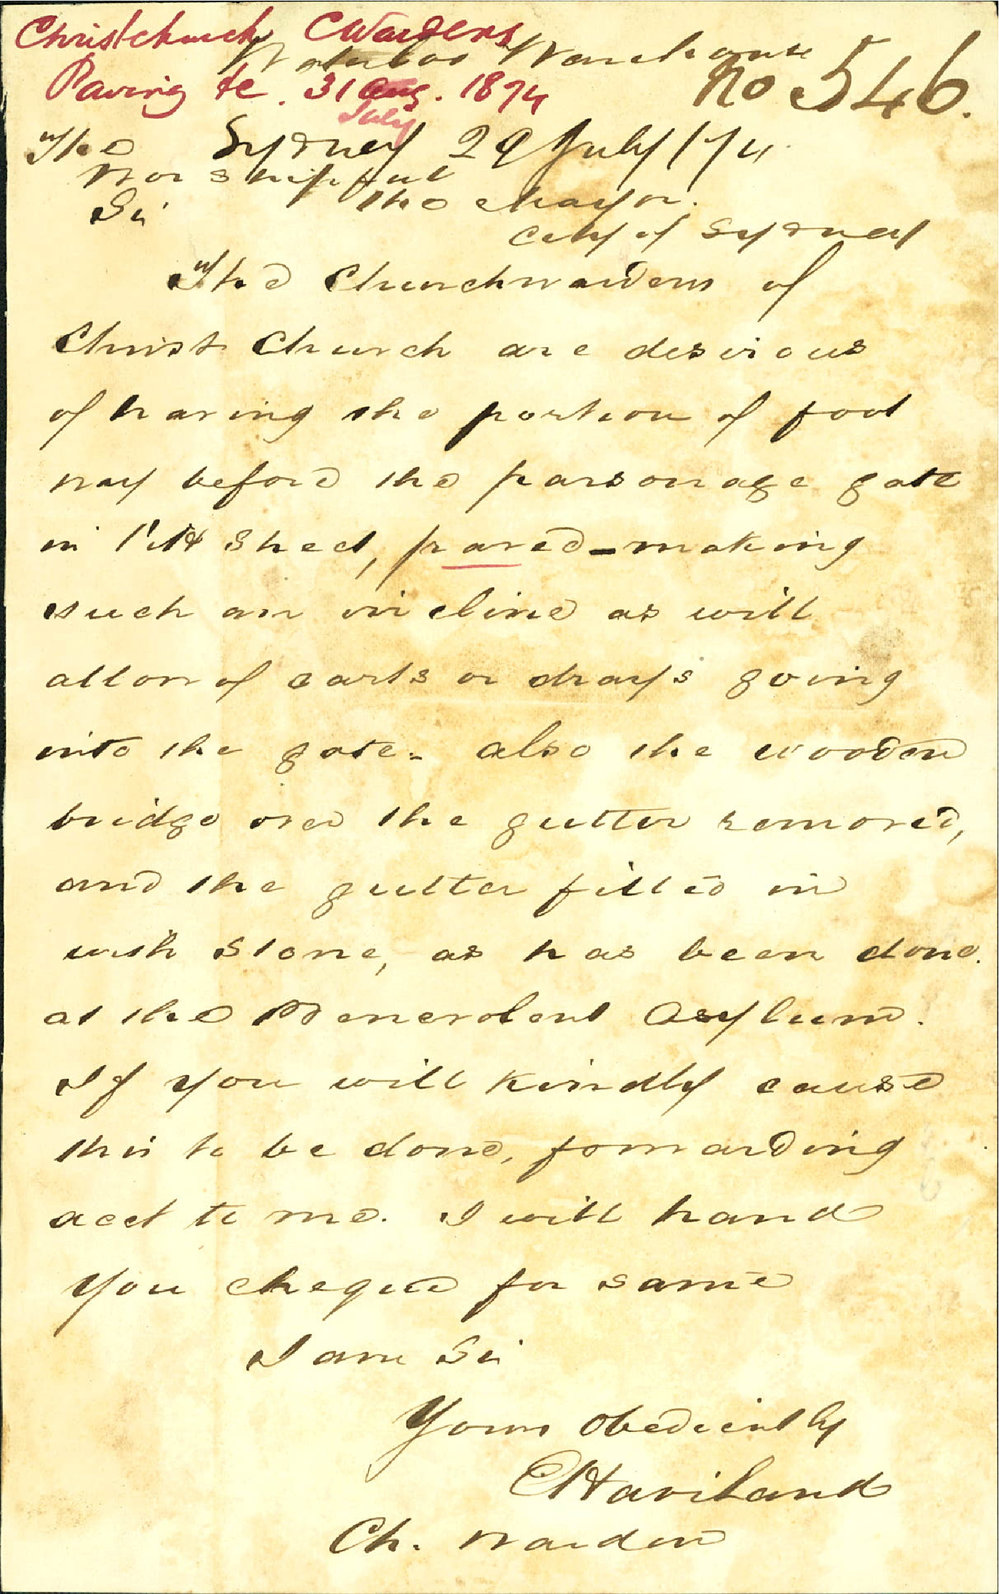 Christchurch CWardens
Waterloo Warehouse
Paving &c. 31 Aug. 1874
July
No 546.
Sydney 29 July / 74
The
Worshipful
the Mayor.
City of Sydney
Sir
The Churchwardens of
Christ Church are desirous
of having the portion of foot
way before the parsonage gate
in Pitt Street, paved - making
such an incline as will
allow of carts or drays going
into the gate - also the wooden
bridge over the gutter removed,
and the gutter filled in
with stone, as has been done
at the Benevolent Asylum.
If you will kindly cause
this to be done, forwarding
acct to me. I will hand
you cheque for same
I am Sir
Yours obediently
E Haviland
Ch. Warden